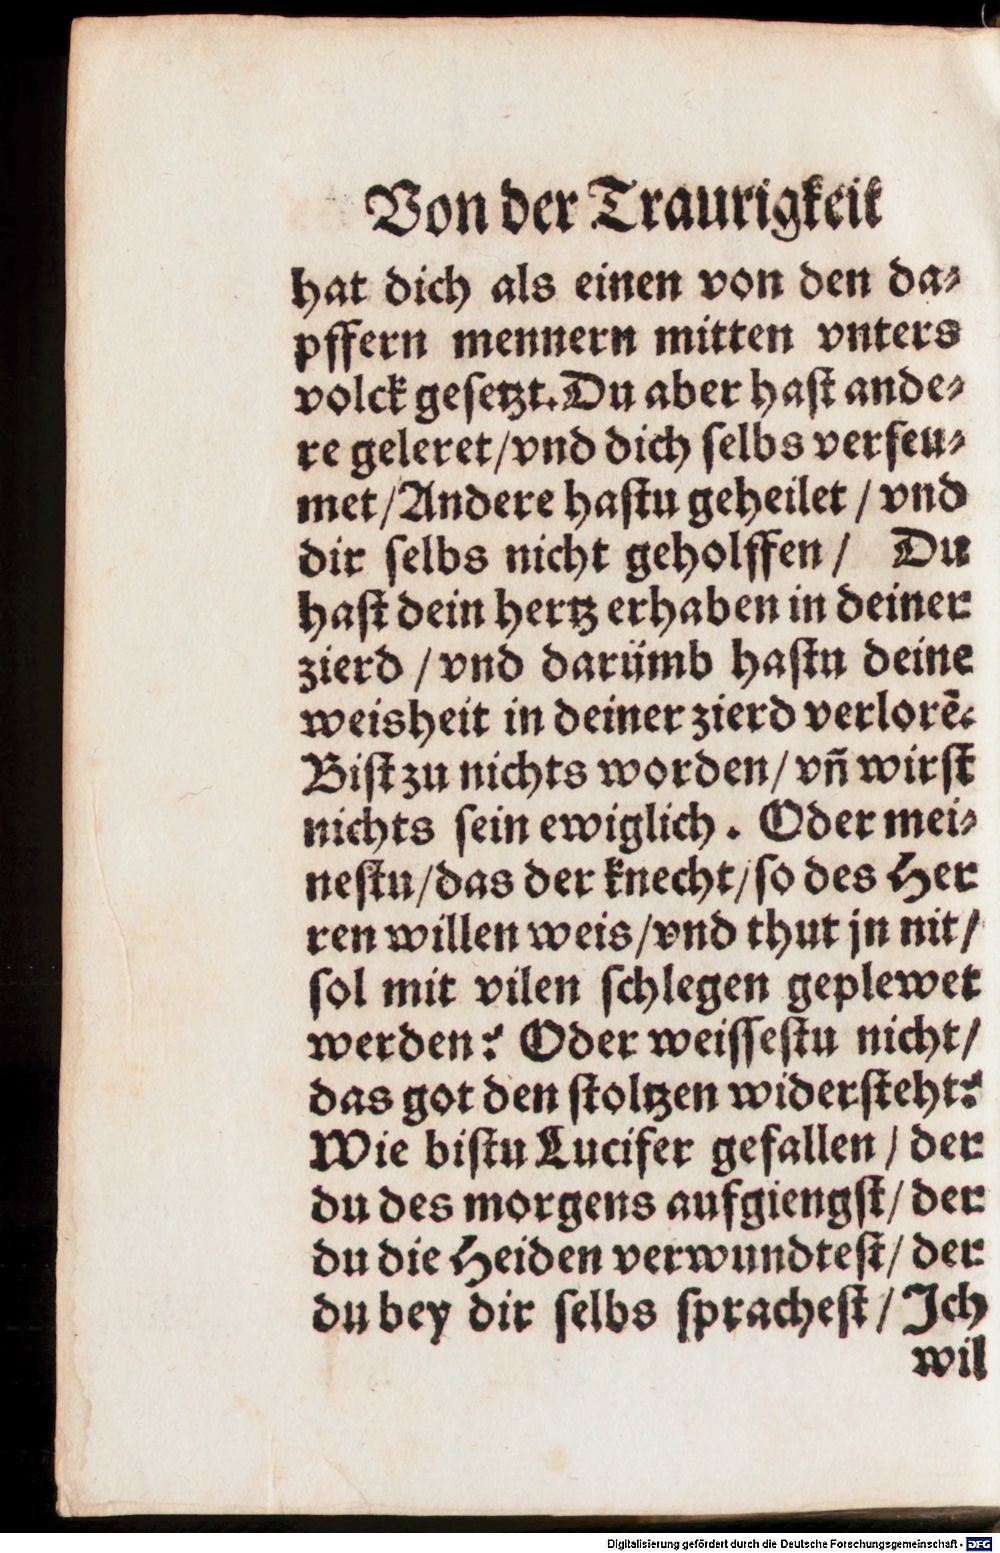 Von der Traurigkeit
hat dich als einen von den da⸗
pffern mennern mitten vnters
volck geſetzt. Du aber haſt ande⸗
re geleret/vnd dich ſelbs verſeu⸗
met/Andere haſtu geheilet / vnd
dir ſelbs nicht geholffen / Du
haſt dein hertz erhaben in deiner
zierd / vnd darümb haſtu deine
weisheit in deiner zierd verlorẽ.
Biſt zu nichts worden/ vñ wirſt
nichts ſein ewiglich. Oder mei⸗
neſtu/das der knecht/ſo des Her
ren willen weis/vnd thut jn nit/
ſol mit vilen ſchlegen geplewet
werden? Oder weiſſeſtu nicht/
das got den ſtoltzen widerſteht?
Wie biſtu Lucifer gefallen / der
du des morgens aufgiengſt/ der
du die Heiden verwundteſt/ der
du bey dir ſelbs ſpracheſt / Ich
wil
Digitalisierung gefördert durch die Deutsche Forschungsgemeinschaft - DFG